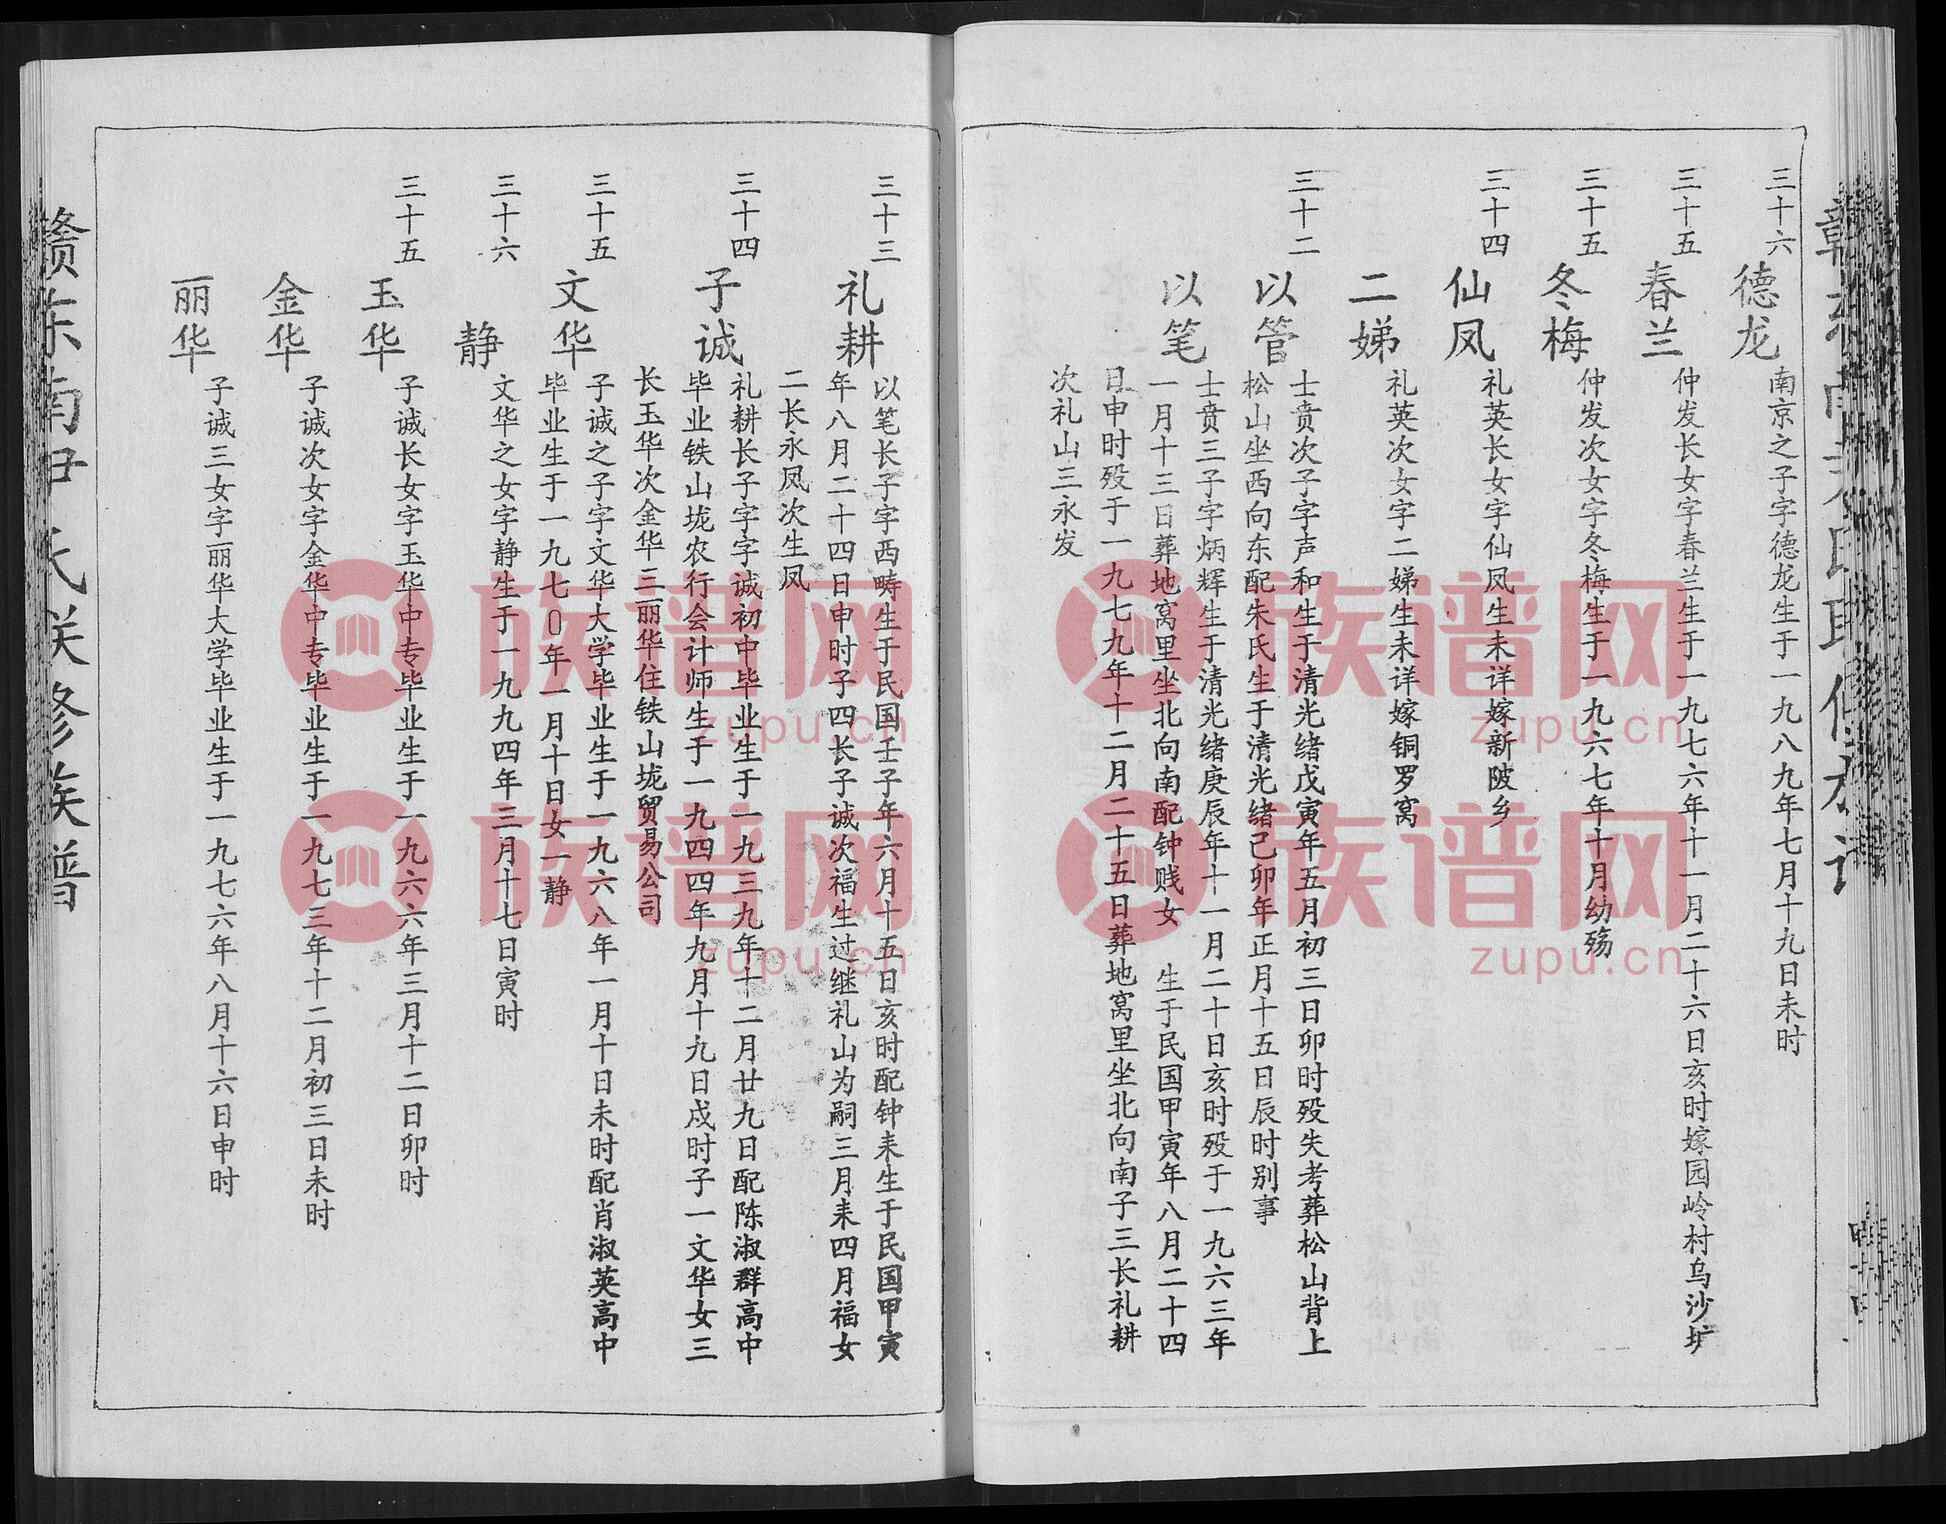 三十六
德龙
南京之子字德龙生于一九八九年七月十九日未时
三十五
春兰
仲发长女字春兰生于一九七六年十一月二十六日亥时嫁园岭村乌沙圹
三十五
冬梅
仲发次女字冬梅生于一九六七年十月幼殇
三十四
仙凤
礼英长女字仙凤生未详嫁新陂乡
二娣
礼英次女字二娣生未详嫁铜罗窝
三十二
以管
士贲次子字声和生于清光绪戊寅年五月初三日卯时殁失考葬松山背上
松山坐西向东配朱氏生于清光绪己卯年正月十五日辰时别事
以笔
士贲三子字炳辉生于清光绪庚辰年十一月二十日亥时殁于一九六三年
一月十三日葬地窝里坐北向南配钟贱女 生于民国甲寅年八月二十四
日申时殁于一九七九年十二月二十五日葬地窝里坐北向南子三长礼耕
次礼山三永发
三十三
礼耕
以笔长子字西畴生于民国壬子年六月十五日亥时配钟耒生于民国甲寅
年八月二十四日申时子四长子诚次福生过继礼山为嗣三月耒四月福女
二长永凤次生凤
三十四
子诚
礼耕长子字字诚初中毕业生于一九三九年十二月廿九日配陈淑群高中
毕业铁山垅农行会计师生于一九四四年九月十九日戍时子一文华女三
长玉华次金华三丽华住铁山垅贸易公司
三十五
文华
子诚之子字文华大学毕业生于一九六八年一月十日未时配肖淑英高中
毕业生于一九七0年一月十日女一静
三十六
静
文华之女字静生于一九九四年三月十七日寅时
三十五
玉华
子诚长女字玉华中专毕业生于一九六六年三月十二日卯时
金华
子诚次女字金华中专毕业生于一九七三年十二月初三日未时
丽华
子诚三女字丽华大学毕业生于一九七六年八月十六日申时
赣东南尹氏联修族谱
族谱网
zupu.cn
族谱网
zupu.cn
族谱网
zupu.cn
族谱网
zupu.cn